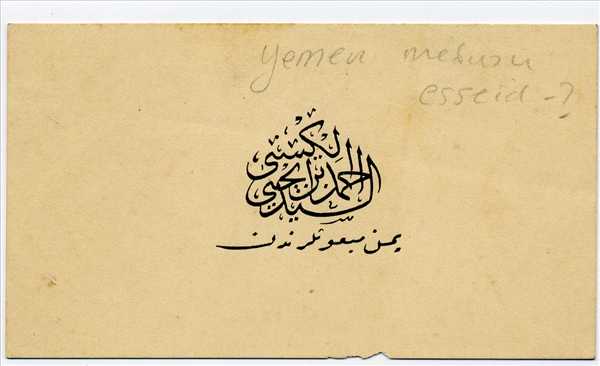 yemen mebusu
esseid -?
السيد احمد بن يحيى الكبسى
يمن مبعوثلرندن